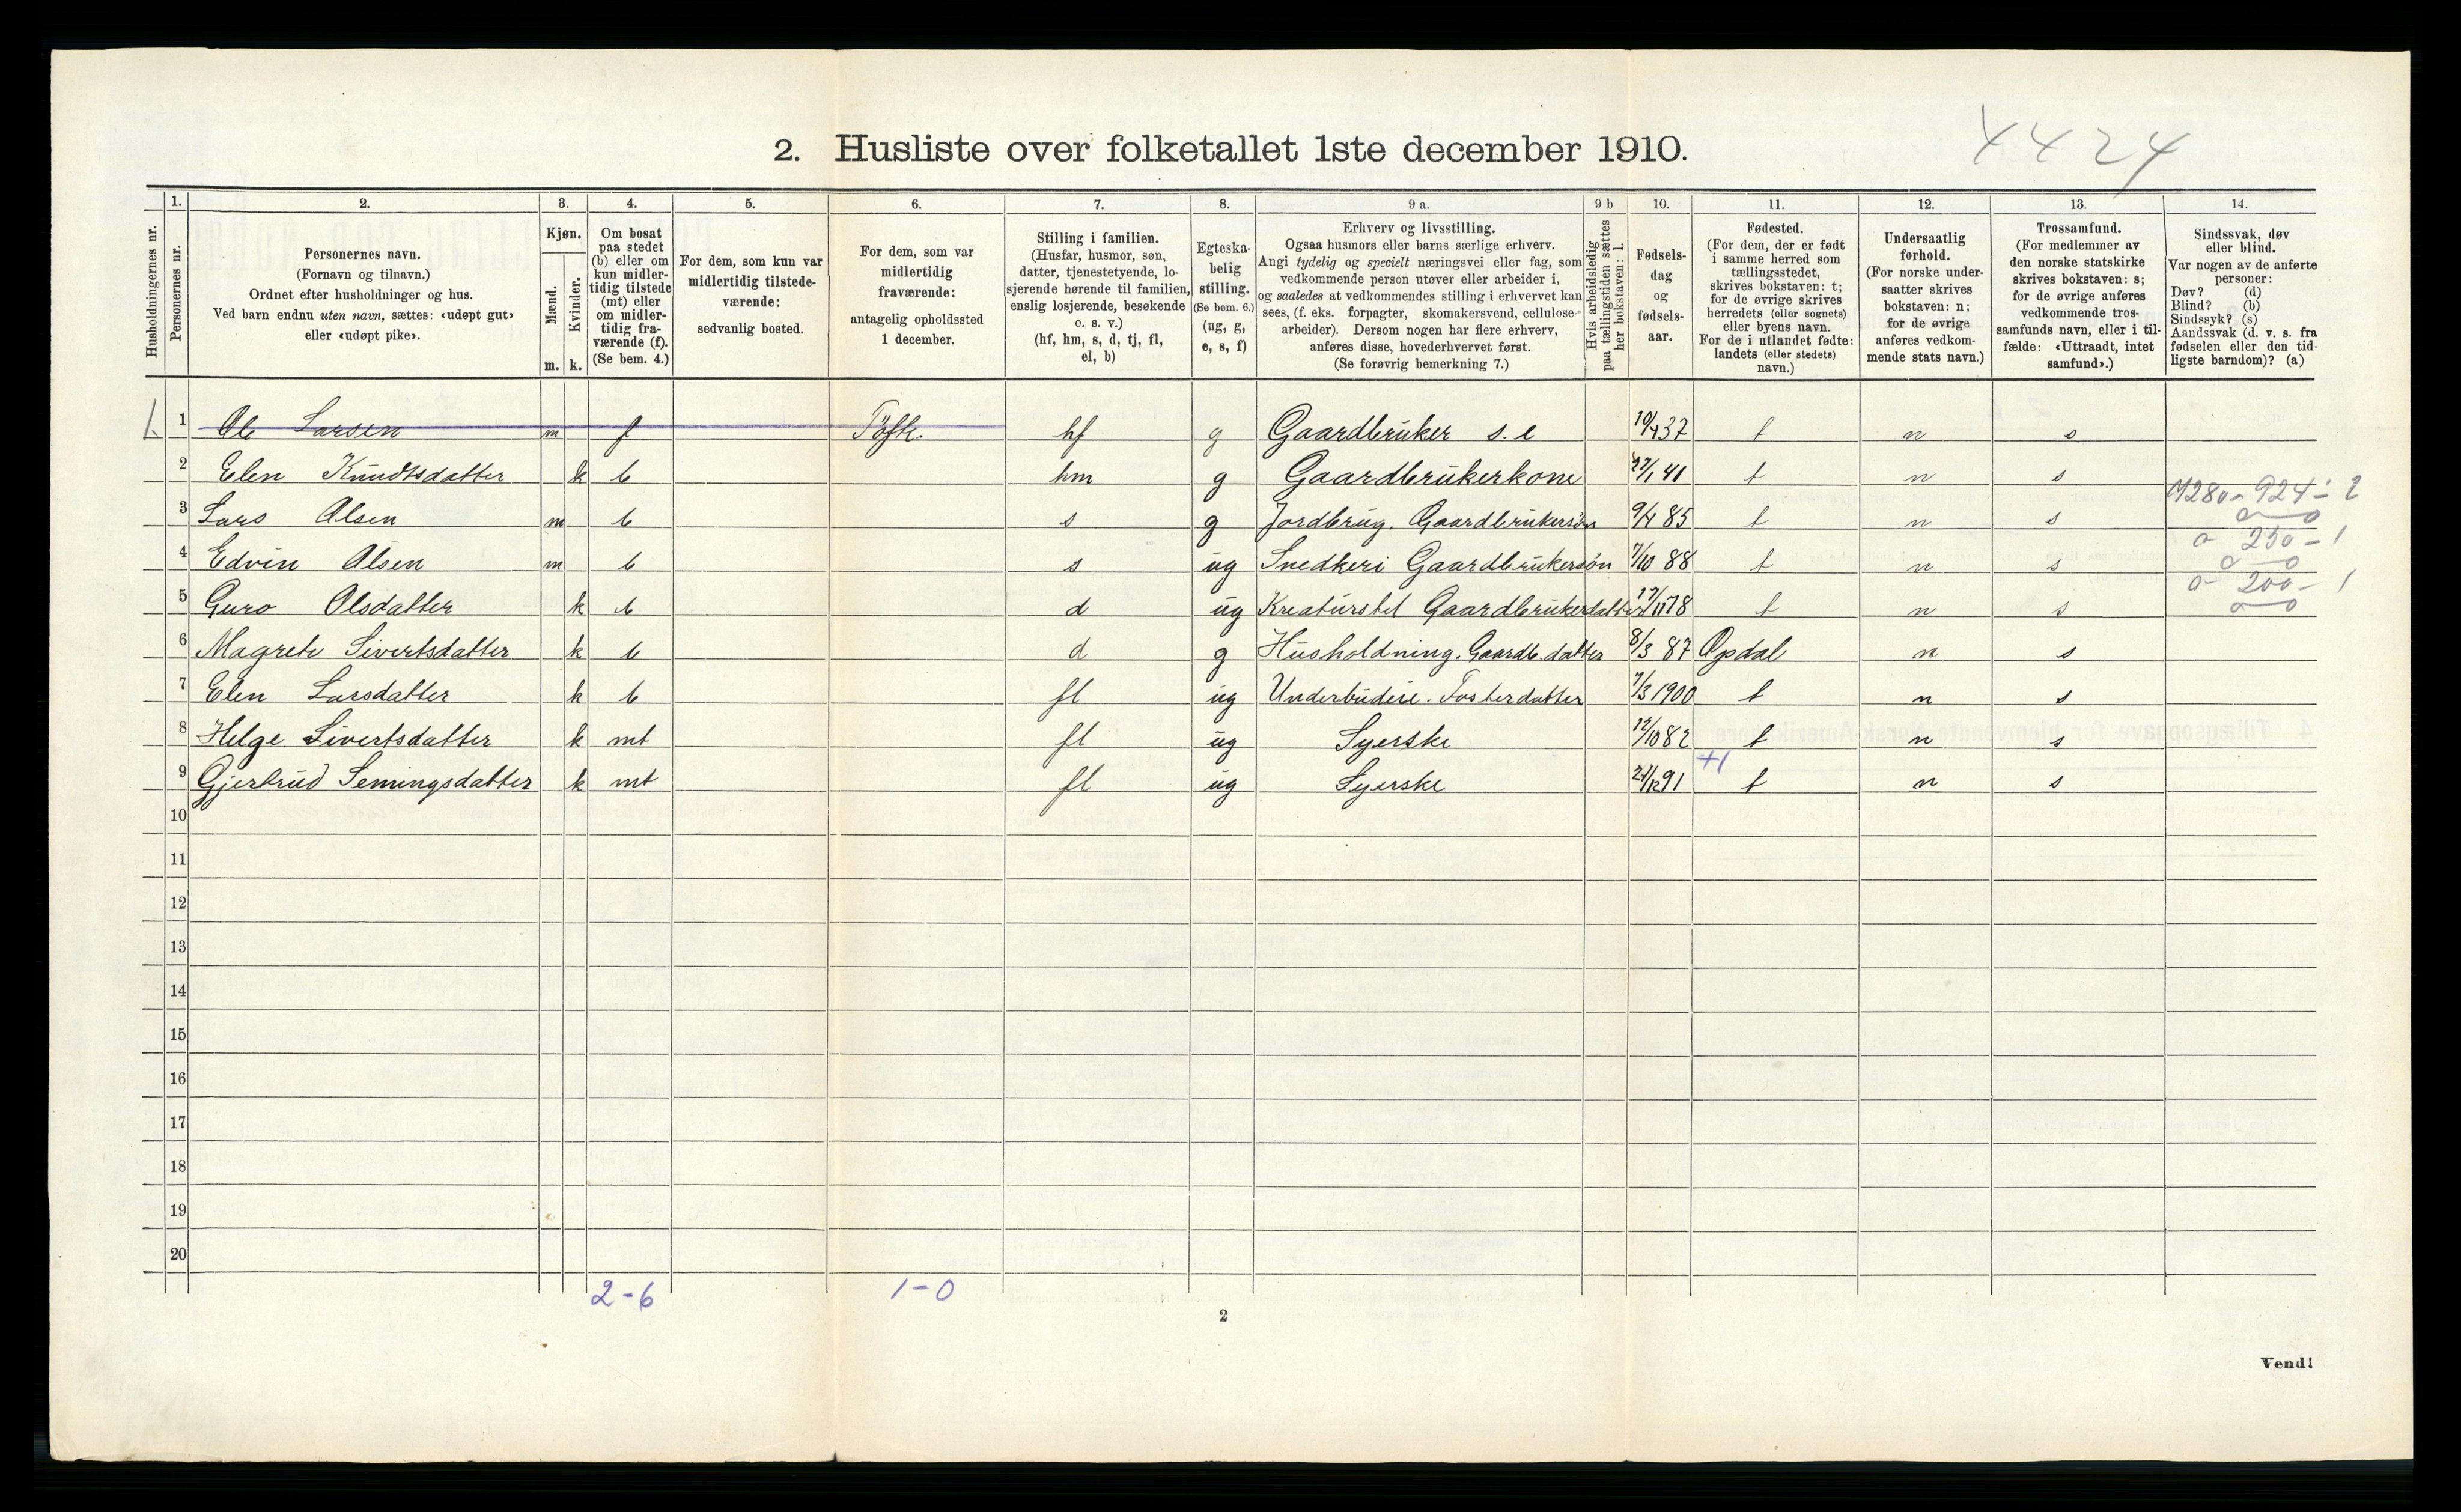 2. Husliste over folketallet 1ste december 1910.
4424
Husholdningernes nr.
1. Personernes nr.
2. Personernes navn. (Fornavn og tilnavn.) Ordnet efter husholdninger og hus. Ved barn endnu uten navn, sættes: «udøpt gut» eller «udøpt pike».
3. Kjøn. Mænd. m. Kvinder. k.
4. Om bosat paa stedet (b) eller om kun midlertidig tilstede (mt) eller om midlertidig fraværende (f). (Se bem. 4.)
5. For dem, som kun var midlertidig tilstedeværende: sedvanlig bosted.
6. For dem, som var midlertidig fraværende: antagelig opholdssted 1 december.
7. Stilling i familien. (Husfar, husmor, søn, datter, tjenestetyende, losjerende hørende til familien, enslig losjerende, besøkende o. s. v.) (hf, hm, s, d, tj, fl, el, b)
8. Egteskabelig stilling. (Se bem. 6.) (ug, g, e, s, f)
9 a. Erhverv og livsstilling. Ogsaa husmors eller barns særlige erhverv. Angi tydelig og specielt næringsvei eller fag, som vedkommende person utøver eller arbeider i, og saaledes at vedkommendes stilling i erhvervet kan sees, (f. eks. forpagter, skomakersvend, cellulosearbeider). Dersom nogen har flere erhverv, anføres disse, hovederhvervet først. (Se forøvrig bemerkning 7.)
9 b Hvis arbeidsledig paa tællingstiden sættes her bokstaven: l.
10. Fødselsdag og fødselsaar.
11. Fødested. (For dem, der er født i samme herred som tællingsstedet, skrives bokstaven: t; for de øvrige skrives herredets (eller sognets) eller byens navn. For de i utlandet fødte: landets (eller stedets) navn.)
12. Undersaatlig forhold. (For norske undersaatter skrives bokstaven: n; for de øvrige anføres vedkommende stats navn.)
13. Trossamfund. (For medlemmer av den norske statskirke skrives bokstaven: s; for de øvrige anføres vedkommende trossamfunds navn, eller i tilfælde: «Uttraadt, intet samfund».)
14. Sindssvak, døv eller blind. Var nogen av de anførte personer: Døv? (d) Blind? (b) Sindssyk? (s) Aandssvak (d. v. s. fra fødselen eller den tidligste barndom)? (a)
1. 1 Ole Larsen m f Tofte. hf g Gaardbruker s. e 19/4 37 t n s
2 Elen Knudtsdatter k b hm g Gaardbrukerkone 27/1 41 t n s
3 Lars Olsen m b s g Jordbrug. Gaardbrukersøn 9/4 85 t n s 1280 - 924 - 2
4 Edvin Olsen m b s ug Snedkeri Gaardbrukersøn 7/10 88 t n s 0 - 250 - 1
5 Guro Olsdatter k b d ug Kreaturstel Gaardbrukerdatter 17/11 78 t n s 0 - 200 - 1
6 Magrete Sivertsdatter k b d g Husholdning. Gaardb. datter 8/3 87 Opdal n s
7 Elen Larsdatter k b fl ug Underbudeie. Fosterdatter 7/3 1900 t n s
8 Helge Sivertsdatter k mt fl ug Syerske 12/10 82 t n s
+1
9 Gjertrud Semingsdatter k mt fl ug Syerske 21/12 91 t n s
10
11
12
13
14
15
16
17
18
19
20
2-6 1-0
2
Vend!